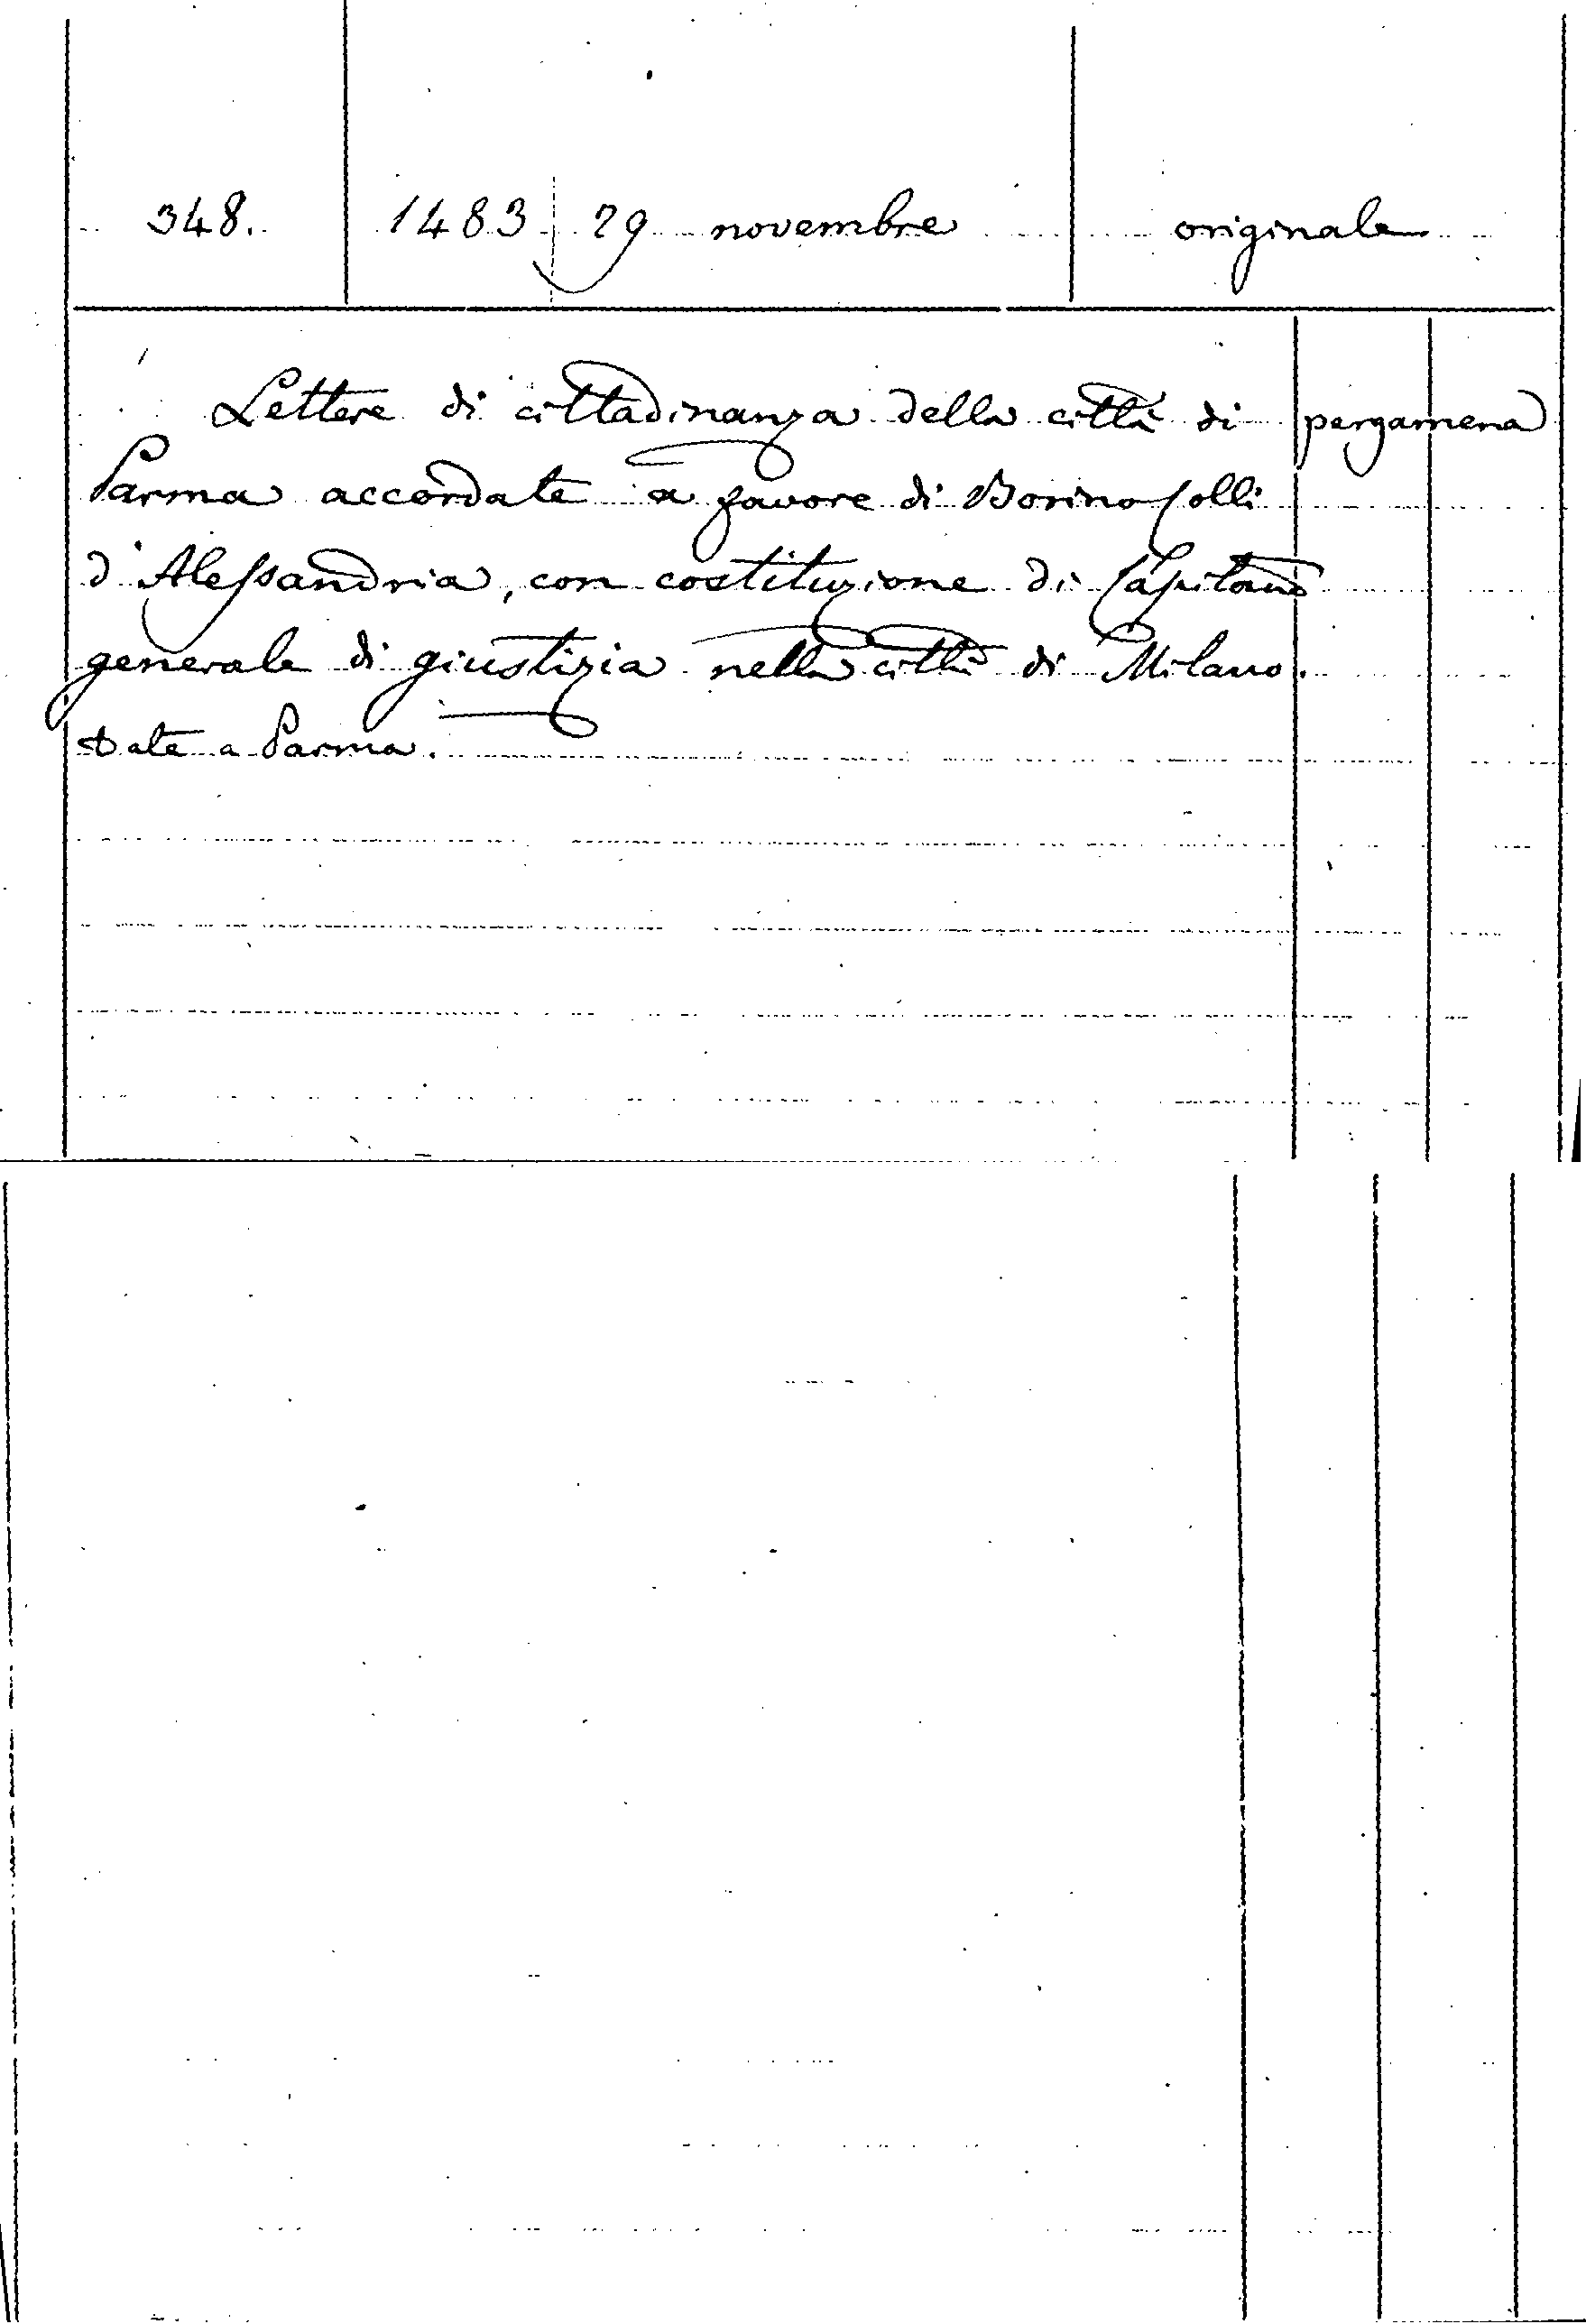 348. 1483 29 novembre originale
Lettere di cittadinanza della città di pergamena
Parma accordate a favore di Borino Colli
d'Alessandria, con costituzione di Capitano
generale di giustizia nella città di Milano.
Date a Parma.